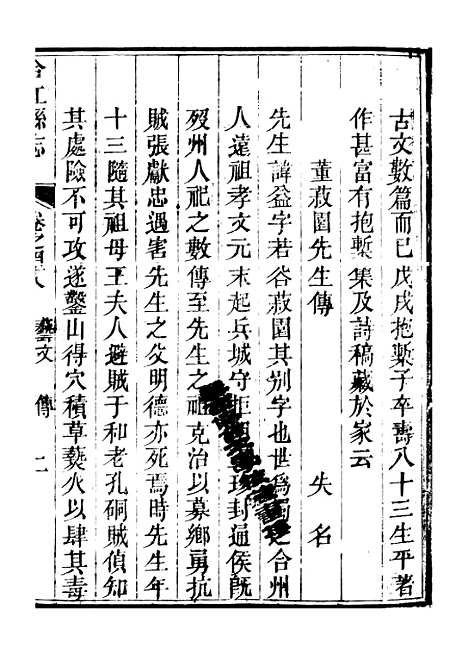 古文數篇而已戊戌抱槧子卒壽八十三生平著
作甚富有抱槧集及詩稿藏於家云
董菽園先生傳
失名
先生諱益字若谷菽園其别字也世爲之合州
人遠祖孝文元末起兵城守拒封通侯旣
歿州人祀之數傳至先生之祖克治以募鄉勇抗
賊張獻忠遇害先生之父明德亦死焉時先生年
十三隨其祖母王夫人避賊于和老孔硐賊偵知
其處險不可攻遂鑿山得穴積草爇火以肆其毒
合江縣志
藝文
傳